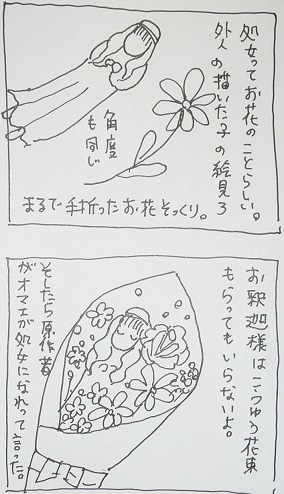 処女ってお花のことらしい。
外人の描いた子の絵見ろ
角度
も同じ
まるで手折ったお花そっくり。
お釈迦様はこうゆう花束
もらってもいらないよ。
そしたら原作者
がオマエが処女になれって言った。